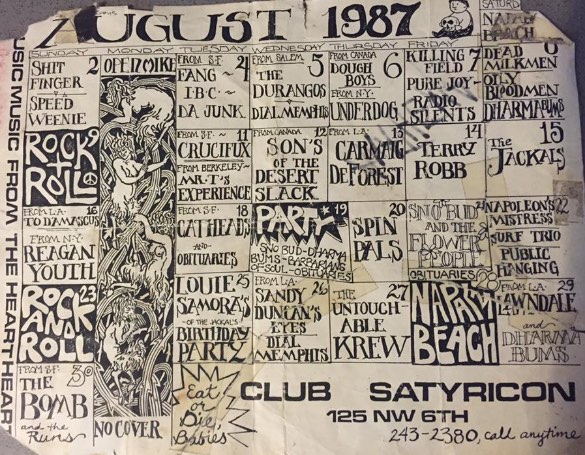 AUGUST 1987
SUNDAY MONDAY TUESDAY WEDNESDAY THURSDAY FRIDAY SATURD
MUSIC MUSIC FROM THE HEART HEART
2
SHIT
FINGER
SPEED
WEENIE
OPEN MIKE
FROM S.F. 4
FANG ~
I·B·C ~
DA JUNK
FROM SALEM 5
THE
DURANGOS
DIAL MEMPHIS
FROM CANADA 6
DOUGH
BOYS
FROM N.Y.
UNDERDOG
KILLING 7
FIELD
PURE JOY
RADIO
SILENTS
NAPALM
BEACH
8
DEAD
MILKMEN
OILY
BLOODMEN
DHARMA BUMS
9
ROCK
+
ROLL
FROM S.F. 11
CRUCIFIX
FROM BERKELEY
MR. T
EXPERIENCE
FROM CANADA 12
SON'S
OF THE
DESERT
SLACK
FROM L.A. 13
CARMAIG
DEFOREST
14
TERRY
ROBB
15
The
JACKALS
FROM L.A. 16
TO DAMASCUS
FROM N.Y.
REAGAN
YOUTH
FROM S.F. 18
CATHEADS
AND
OBITUARIES
PARTY 19
SNO BUD - DHARMA
BUMS - BARBARIANS
OF SOUL - OBITUARIES
20
SPIN
PALS
SNO BUD
AND THE
FLOWER
PEOPLE
OBITUARIES
NAPOLEON'S 22
MISTRESS
SURF TRIO
PUBLIC
HANGING
23
ROCK
AND
ROLL
LOUIE 25
SAMORA'S
OF THE JACKALS
BIRTHDAY
PARTY
FROM L.A. 26
SANDY
DUNCAN'S
EYES
DIAL
MEMPHIS
THE 27
UNTOUCH-
ABLE
KREW
NAPALM
BEACH
FROM L.A. 29
LAWNDALE
and
DHARMA
BUMS
FROM S.F. 30
THE
BOMB
and the
Runs
NO COVER
Eat
or
Die,
Babies
CLUB SATYRICON
125 NW 6TH
243-2380, call anytime